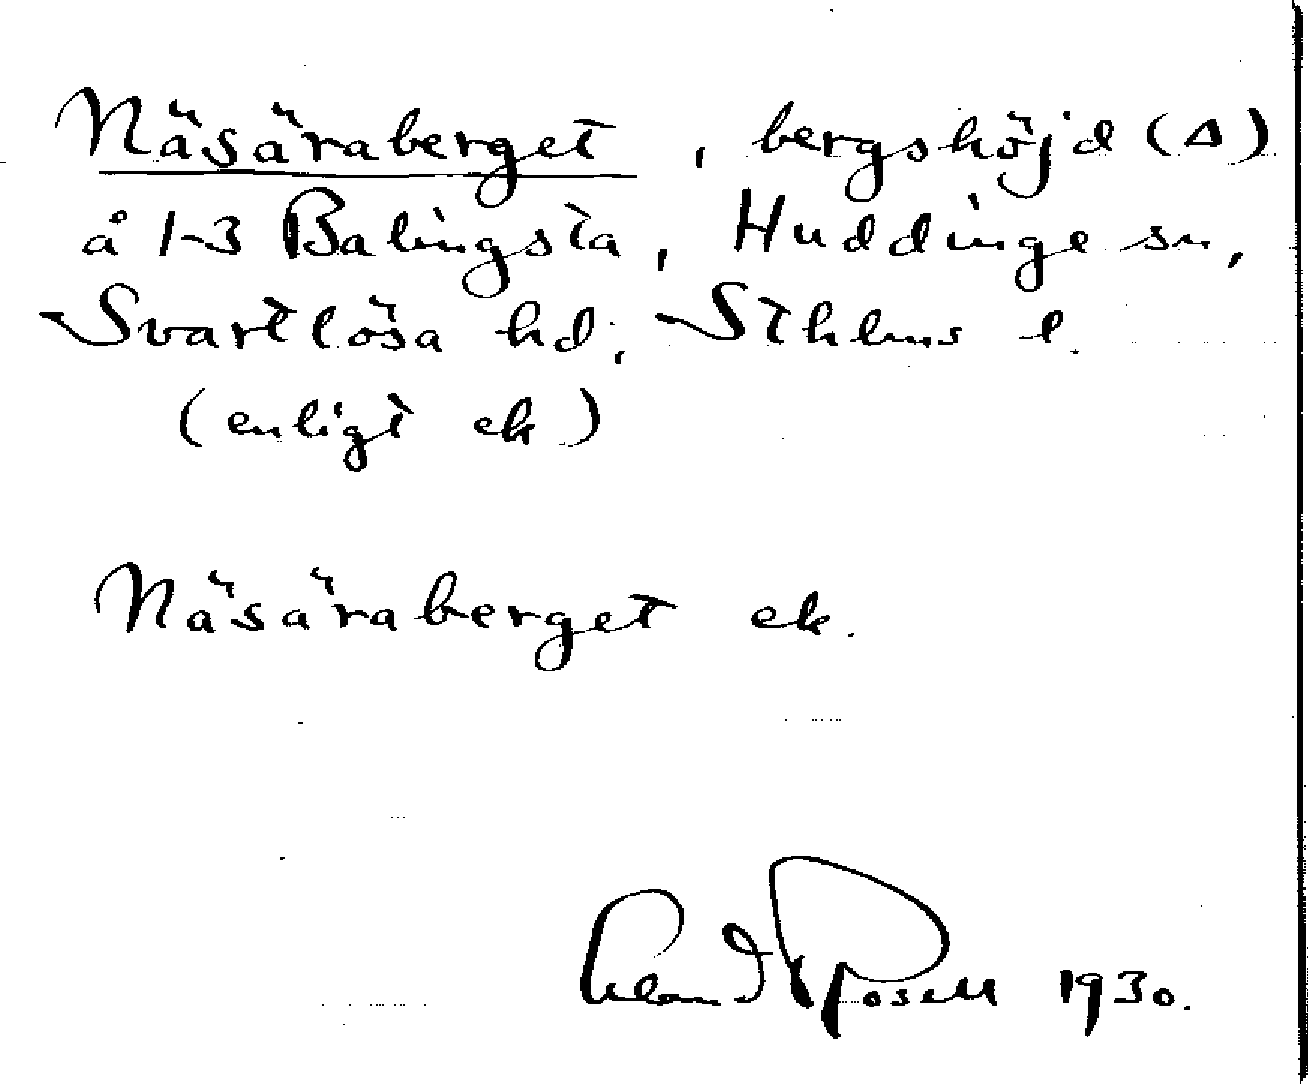 Näsäraberget, bergshöjd (Δ)
å 1-3 Balingsta, Huddinge sn,
Svartlösa hd, Sthlms l.
(enligt ek)
Näsäraberget ek.
Rosell 1930.